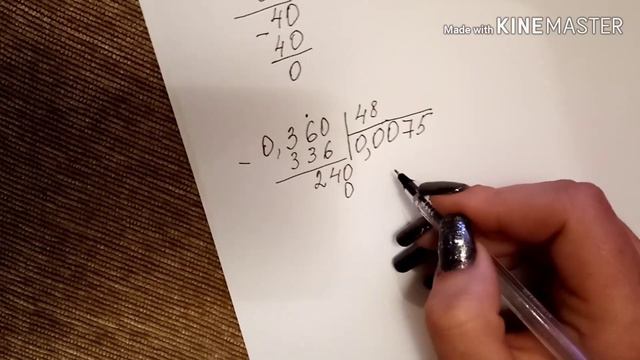 Made with KINEMASTER
40
- 40
0
- 0,360 | 48
336 | 0,0075
240
0